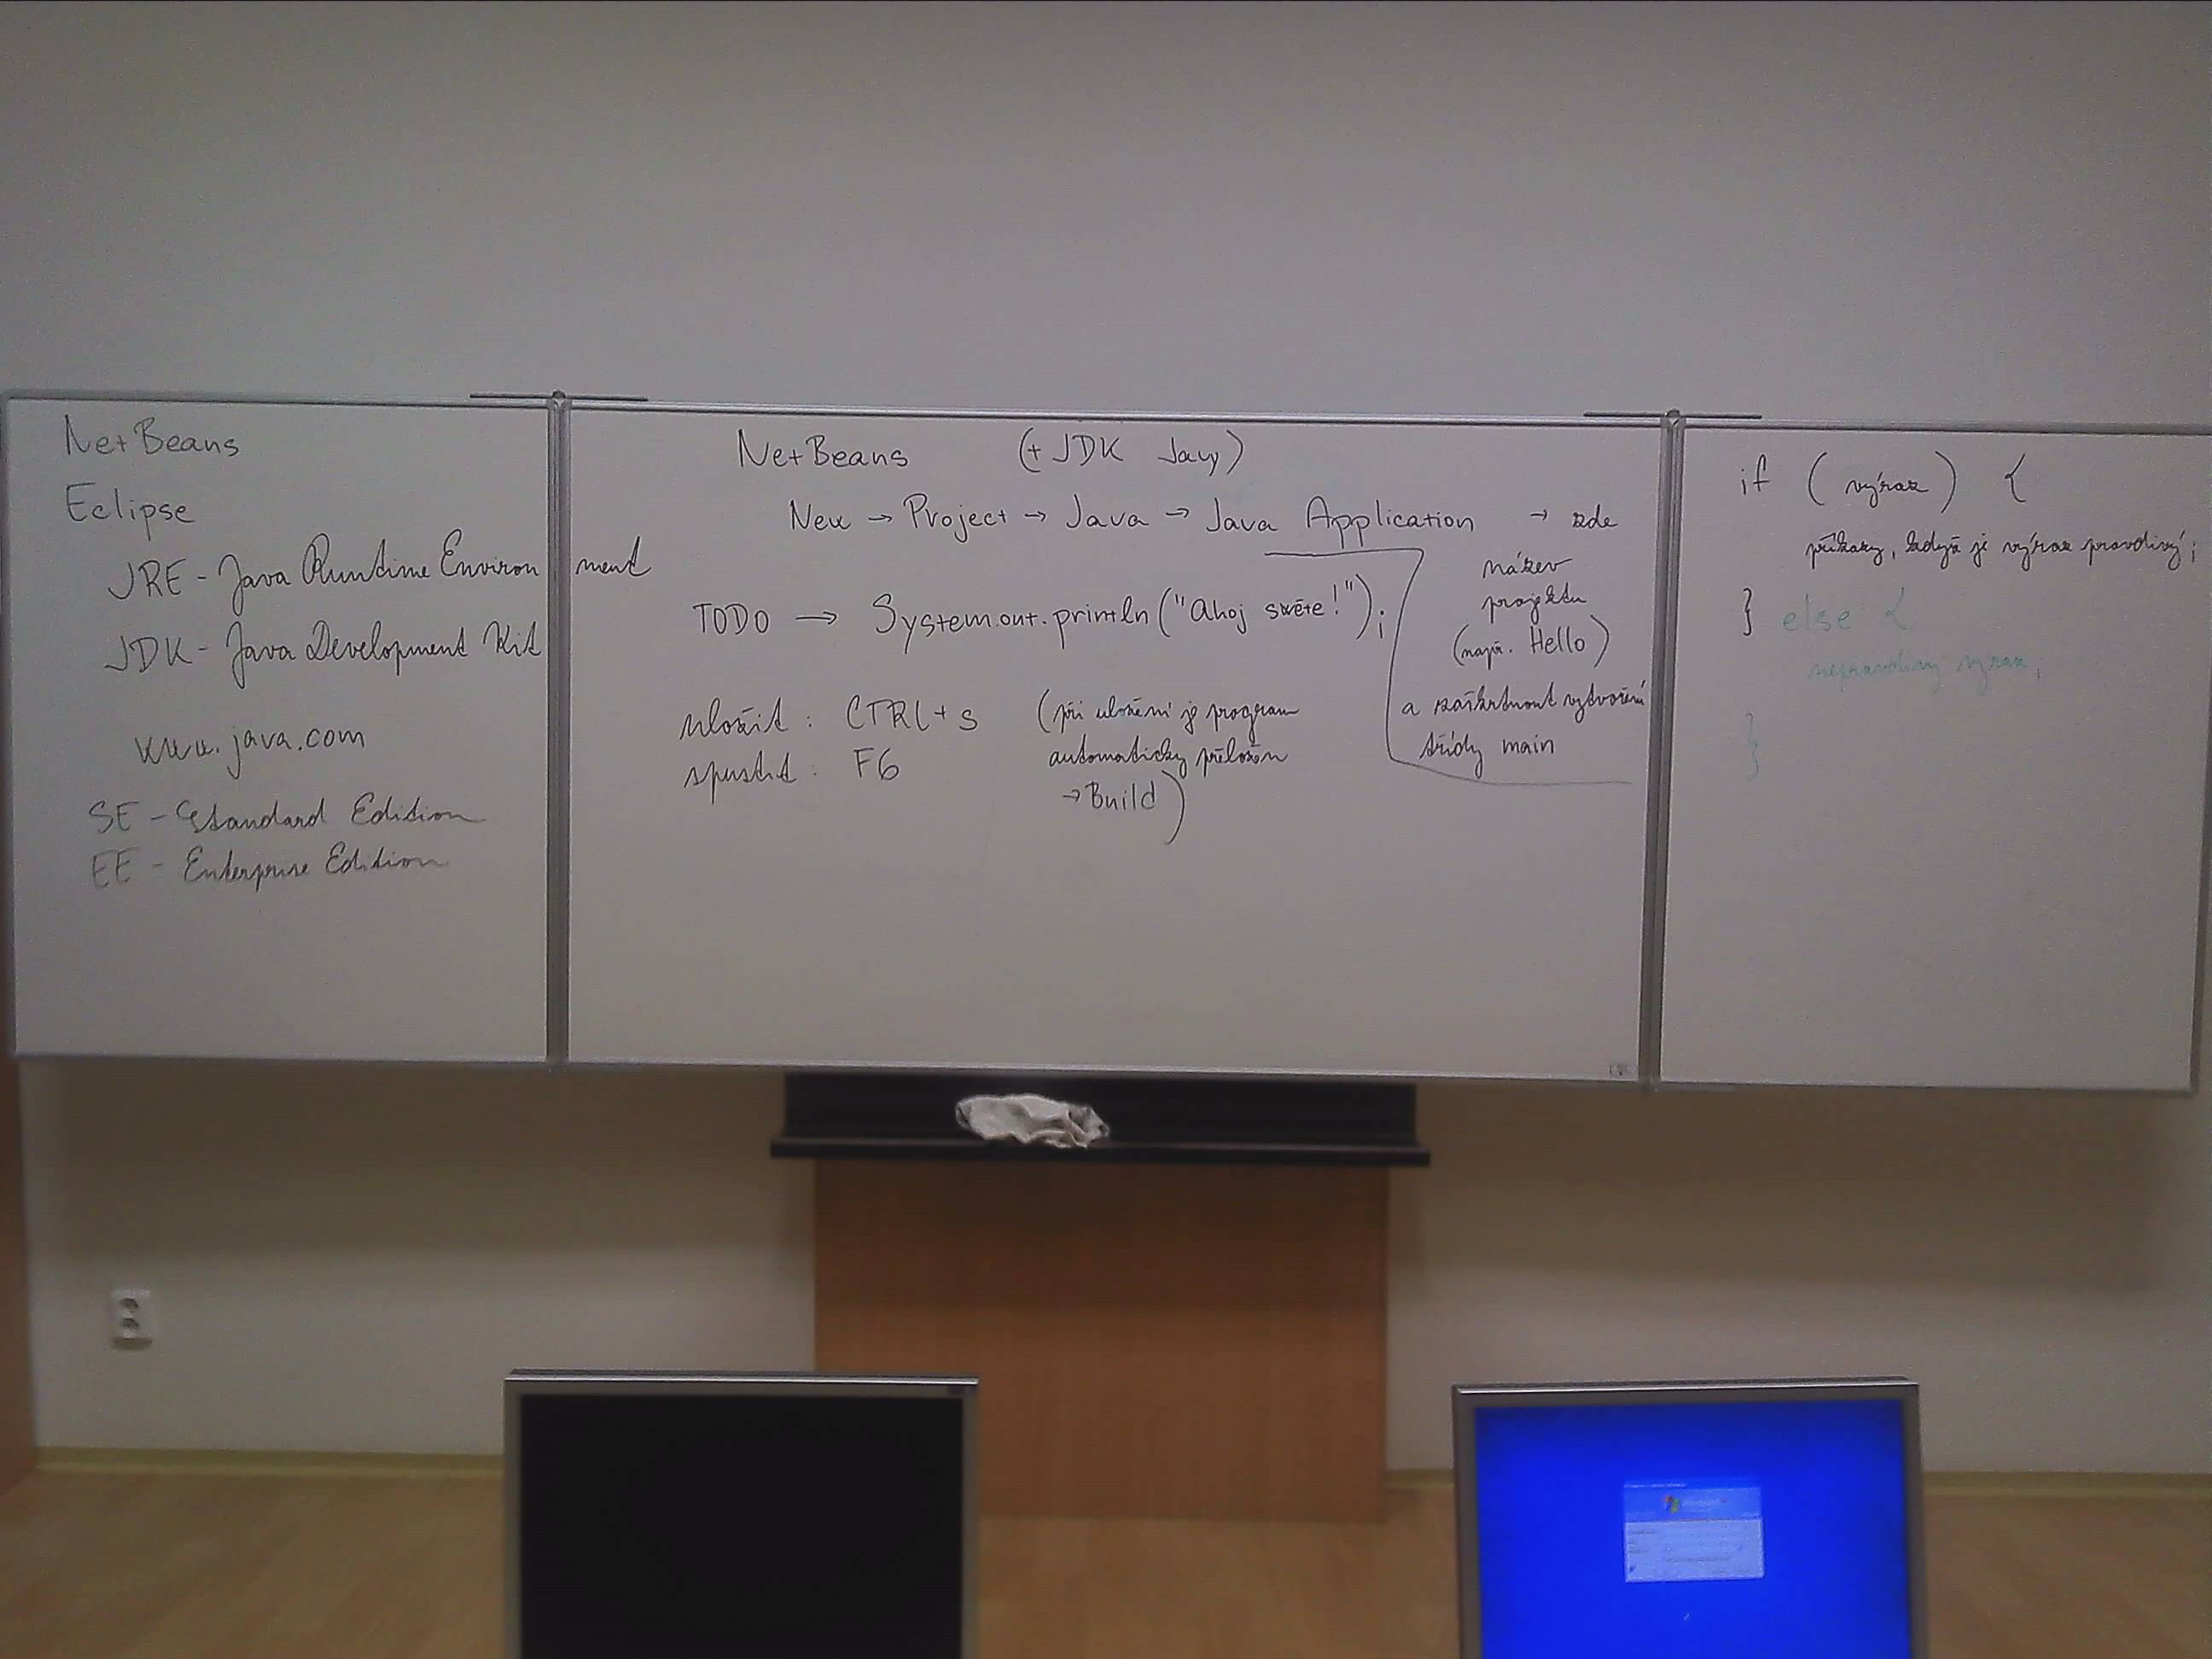 NetBeans
Eclipse
JRE - Java Runtime Environment
JDK - Java Development Kit
www.java.com
SE - Standard Edition
EE - Enterprise Edition
NetBeans (+ JDK Javy)
New → Project → Java → Java Application → zde
název
projektu
(např. Hello)
a zaškrtnout vytvoření
třídy main
TODO → System.out.println("Ahoj světe!");
uložit : CTRL+S
spustit : F6
(při uložení je program
automaticky přeložen
→ Build)
if (výraz) {
příkazy, když je výraz pravdivý;
} else {
nepravdivý výraz;
}